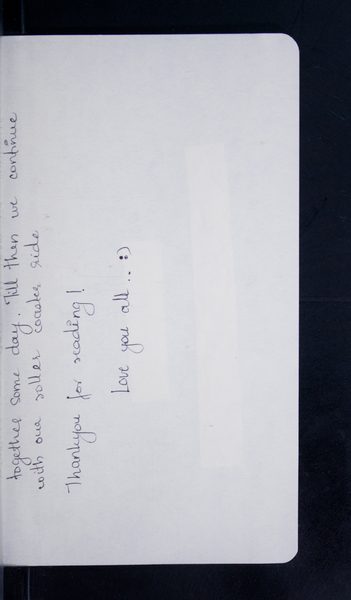 together some day. Till then we continue
with our roller coaster ride
Thankyou for reading!
Love you all.. :)